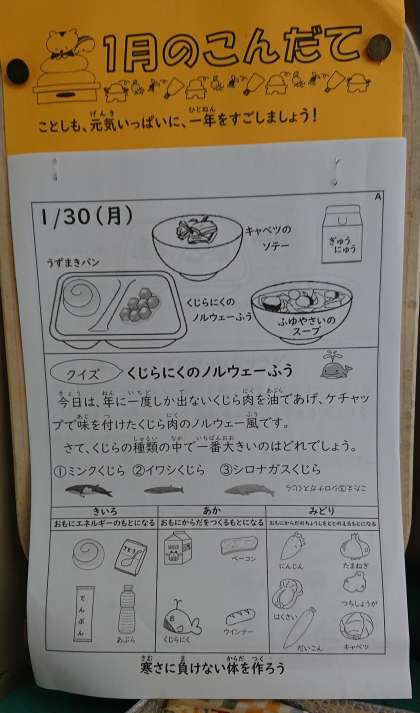 1月のこんだて
ことしも、元気いっぱいに、一年をすごしましょう！
A
1/30(月)
キャベツの
ソテー
ぎゅう
にゅう
うずまきパン
くじらにくの
ノルウェーふう
ふゆやさいの
スープ
クイズ
くじらにくのノルウェーふう
今日は、年に一度しか出ないくじら肉を油であげ、ケチャッ
プで味を付けたくじら肉のノルウェー風です。
さて、くじらの種類の中で一番大きいのはどれでしょう。
①ミンククジラ ②イワシくじら ③シロナガスくじら
こたえ③シロナガスくじら
きいろ
あか
みどり
おもにエネルギーのもとになる
おもにからだをつくるもとになる
おもにからだのちょうしをととのえるもとになる
さとう
でんぷん
あぶら
ベーコン
くじらにく
ウインナー
にんじん
たまねぎ
はくさい
つちしょうが
だいこん
キャベツ
寒さに負けない体を作ろう